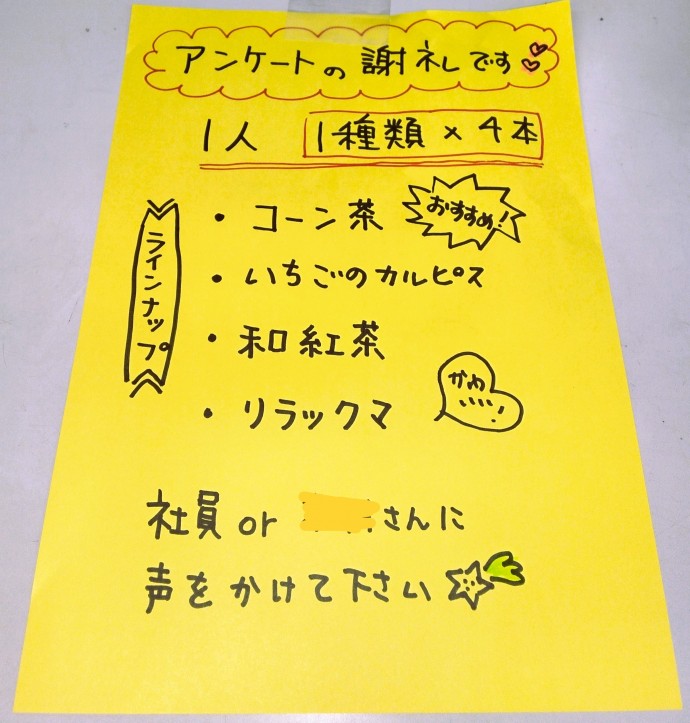 アンケートの謝礼です
1人 1種類×4本
ラインナップ
・コーン茶 おすすめ!
・いちごのカルピス
・和紅茶
・リラックマ かわいいい!
社員or さんに
声をかけて下さい